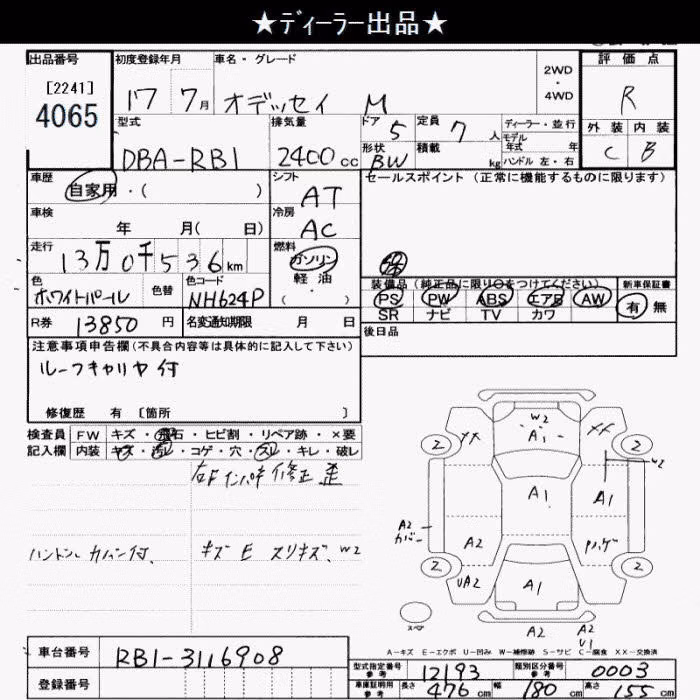 ★ディーラー出品★
出品番号 初度登録年月 車名・グレード 評価点
[2241]
4065
17 7月 オデッセイ M
2WD
・
4WD
R
型式 排気量 ドア 5 定員 7 人 ディーラー・並行
モデル
年式 年
外装 内装
DBA-RB1 2400cc 形状 BW 積載 kg ハンドル 左・右 C B
車歴 シフト セールスポイント (正常に機能するものに限ります)
自家用・( ) AT
車検 冷房
年 月( 日) AC
走行 燃料
13万0千536km ガソリン
軽油
( ・ )
色 色替 色コード
ホワイトパール NH624P
装備品 (純正品に限り○をつけてください) 新車保証書
PS PW ABS エアB AW 有 無
SR ナビ TV カワ
R券 13850 円 名変通知期限 月 日
後日品
注意事項申告欄(不具合内容等は具体的に記入して下さい)
ルーフキャリヤ付
修復歴 有 [箇所 ]
検査員 FW キズ・飛石・ヒビ割・リペア跡・×要
記入欄 内装 キズ・汚レ・コゲ・穴・スレ・キレ・破レ
右F インパネ 修正 歪
ハンドル カバー付、 キズ E スリキズ、W2
W2
A1
XX XX
2 2
W2
A1 A1
A2
カバー
A2
2 2
UA2 A1
スペア
A2 A2
U1
A-キズ E-エクボ U-凹み W-補修跡 S-サビ C-腐食 XX-交換済
車台番号 RB1-3116908
型式指定番号
参考
12193 類別区分番号
参考
0003
登録番号
車庫証明用
参考
長さ 476cm 幅 180cm 高さ 155cm